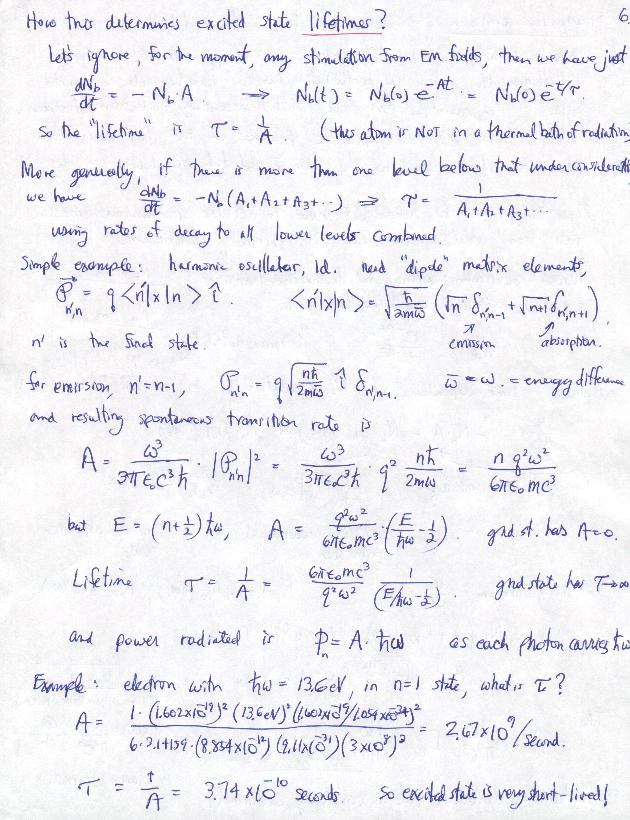 How this determines excited state lifetimes? 6.
Let's ignore, for the moment, any stimulation from EM fields, then we have just
dN_b/dt = -N_b·A ⟶ N_b(t) = N_b(0) e^{-At} = N_b(0) e^{-t/τ}.
so the "lifetime" is τ = 1/A. (this atom is NOT in a thermal bath of radiation
More generally, if there is more than one level below that under considerati
we have dN_b/dt = -N_b (A_1 + A_2 + A_3 + ...) ⇒ τ = 1/(A_1 + A_2 + A_3 + ...
using rates of decay to all lower levels combined.
Simple example: harmonic oscillator, 1d. need "dipole" matrix elements,
P⃗_{n',n} = q <n'|x|n> î. <n'|x|n> = √(ħ/2mω) (√n δ_{n',n-1} + √(n+1) δ_{n',n+1}).
n' is the final state. emission absorption.
for emission, n' = n-1, P_{n'n} = q √(nħ/2mω) î δ_{n',n-1}. ω̄ = ω. = energy difference
and resulting spontaneous transition rate is
A = ω³/(3πε₀c³ħ) · |P_{n'n}|² = ω³/(3πε₀c³ħ) · q² nħ/(2mω) = n q²ω²/(6πε₀mc³)
but E = (n+½)ħω, A = q²ω²/(6πε₀mc³) · (E/ħω - ½). gnd st. has A=0.
Lifetime τ = 1/A = 6πε₀mc³/(q²ω²) · 1/(E/ħω - ½). gnd state has τ→∞
and power radiated is P_n = A·ħω as each photon carries ħω
Example: electron with ħω = 13.6 eV, in n=1 state, what is τ?
A = 1·(1.602×10^{-19})² (13.6 eV)² (1.602×10^{-19}/1.054×10^{-34})² / 6·3.14159·(8.854×10^{-12})(9.11×10^{-31})(3×10^8)² = 2.67×10^9/second.
τ = 1/A = 3.74×10^{-10} seconds. So excited state is very short-lived!